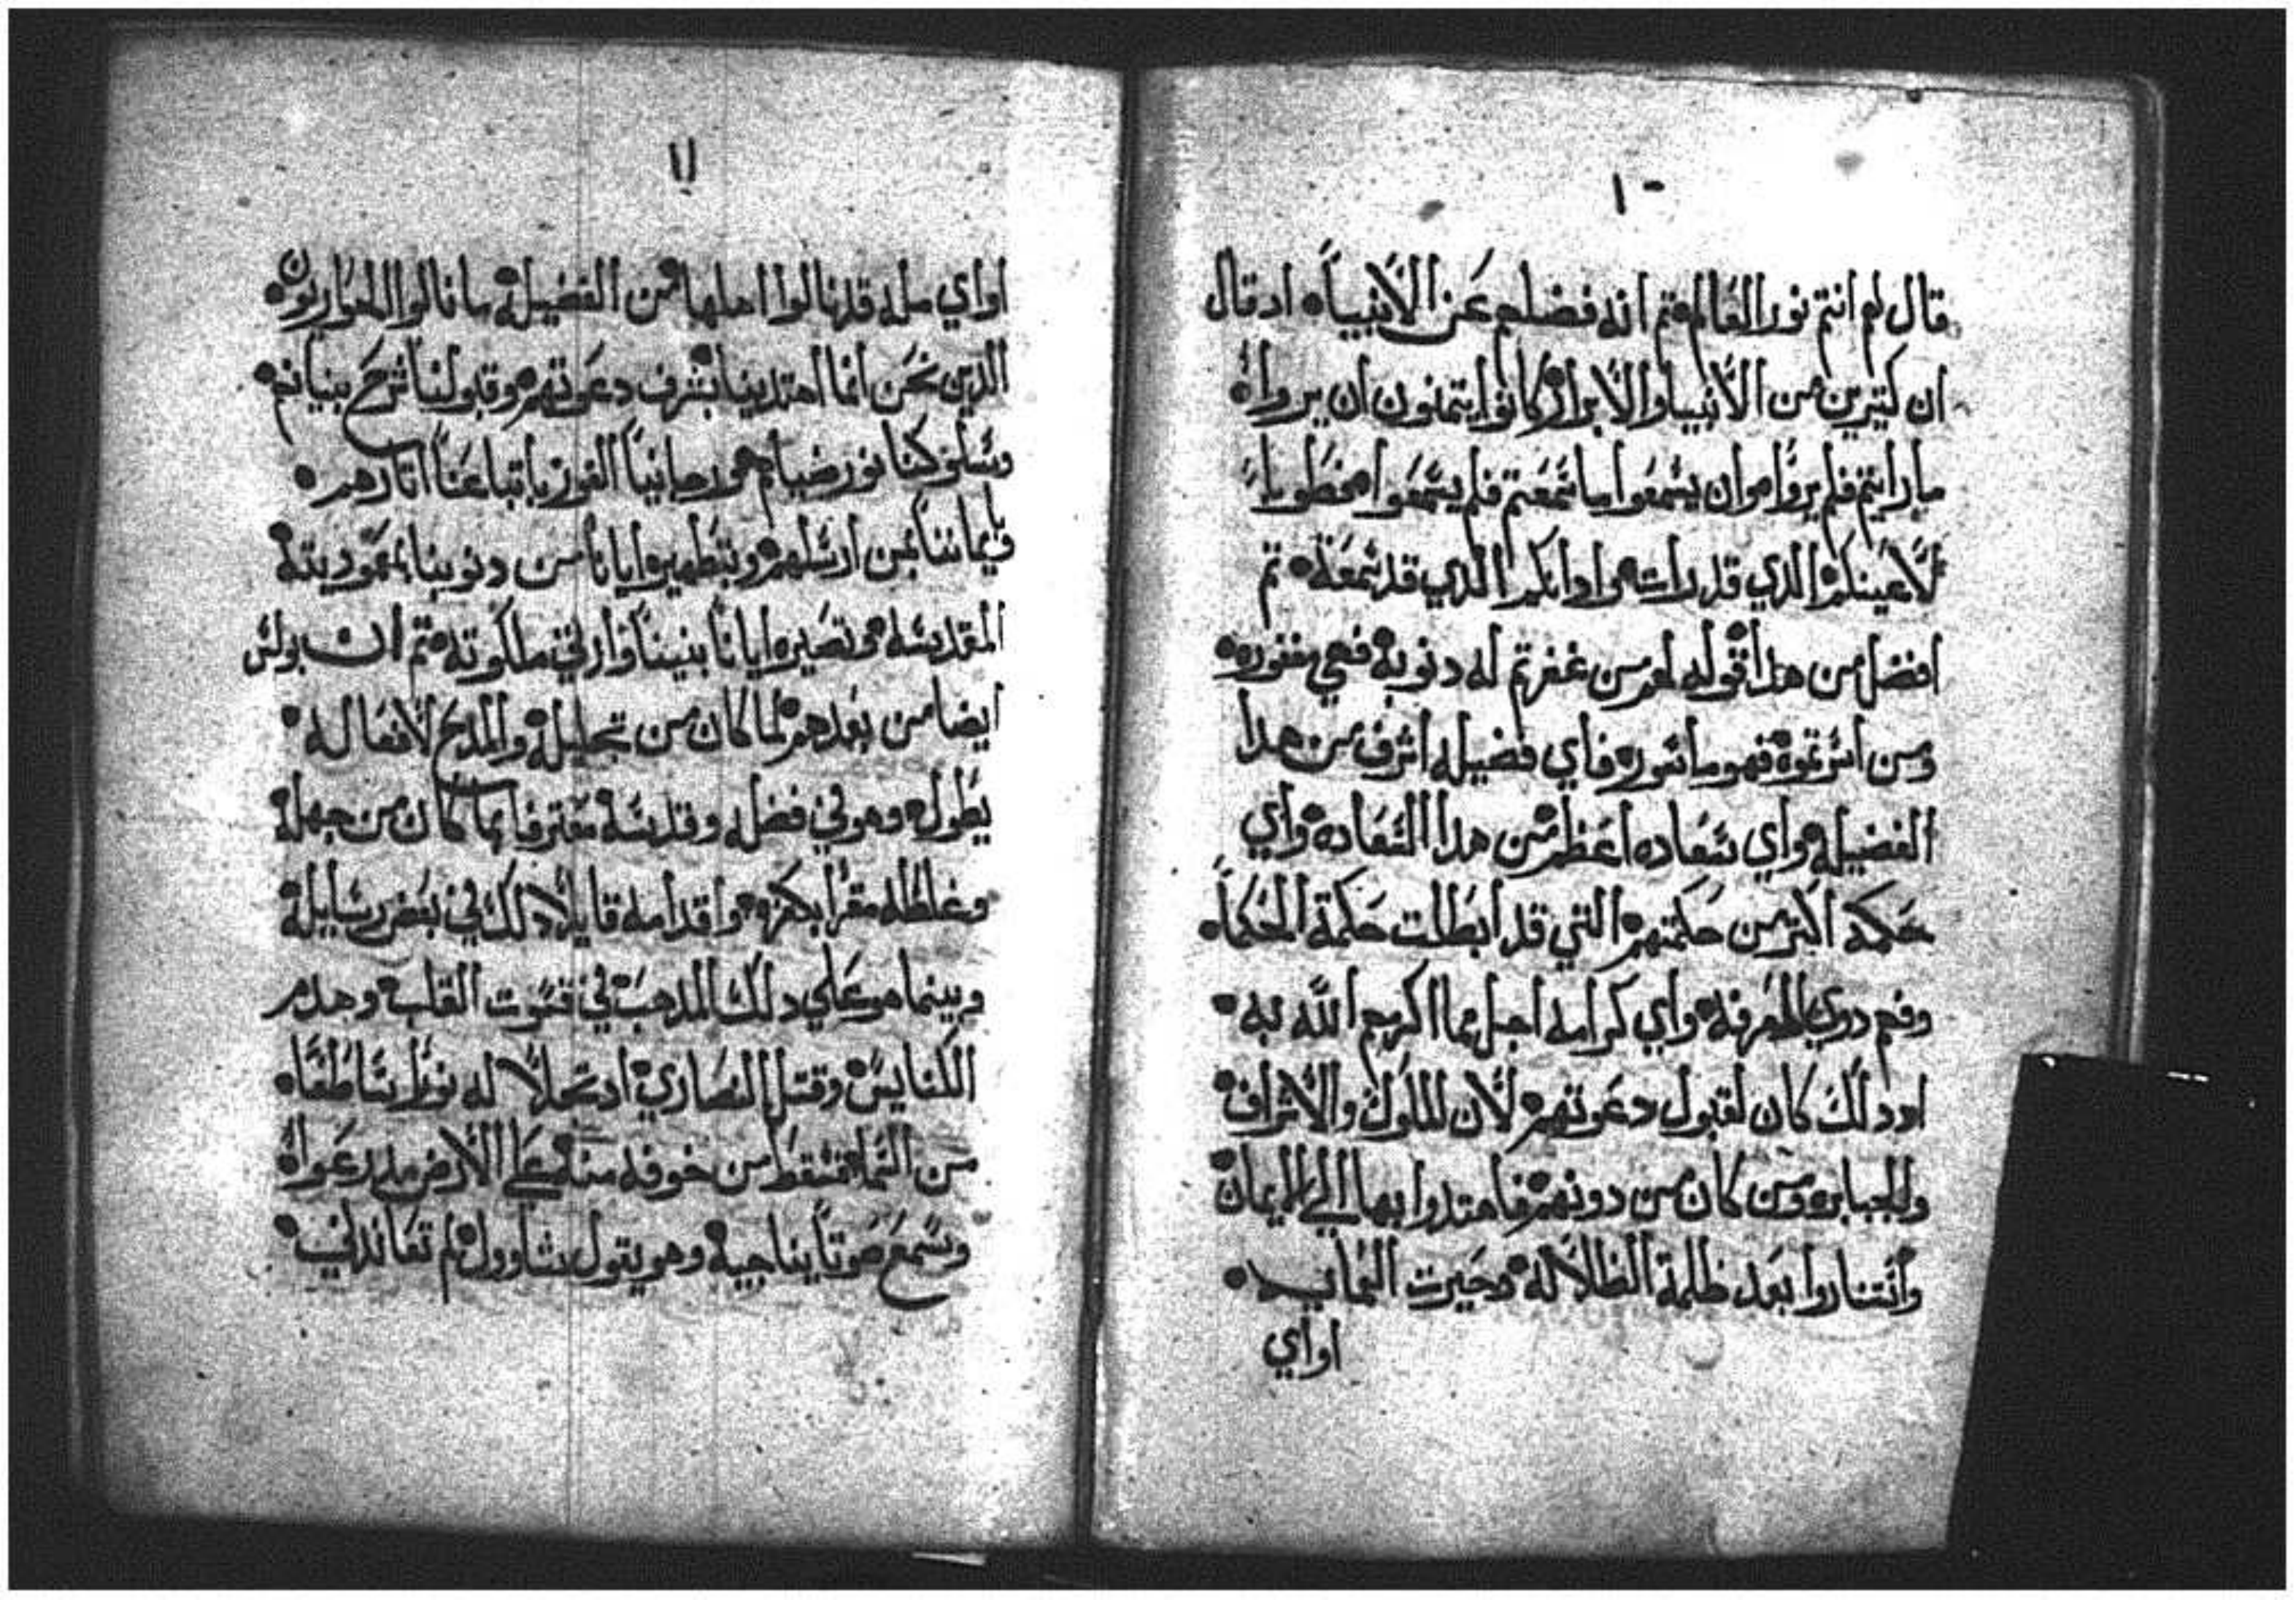 ١٠
قال لهم انتم نور العالم • تم انه فضلهم عن الانبياء • ادقال
ان كتيرين من الانبيا والابرار كانوا يتمنون ان يروا •
ما رايتم فلم يروا • وان يسمعوا ما سمعتم فلم يسمعوا • فطوبا
لاعينكم الدي قد رات • وادانكم الدي قد سمعة • تم
افضل من هدا قوله لهم من غفرتم له دنوبة فهي مغفوره •
ومن اسرتموة فهو ماسور • فاي فضيله اشرف من هدا
الفضيله • واي سعاده اعظم من هدا السعاده • واي
حكمه اكتر من حكمتهم • التي قد ابطلت حكمة الحكما •
وفهم دوي المعرفة • واي كرامه اجل مما اكرمهم الله به •
اددلك كان لقبول دعوتهم • لان للملوك والاشراف •
وللجبابره ومن كان من دونهم • فاهتدوا بها الي الايمان •
واستناروا بعد ظلمة الظلالة • وحيرت
اواي
١١
اواي مله قد نالوا اهلها من الفضيلة • ما نالوا الحواريون •
الدين نحن انما اهتدينا بشرف دعوتهم • وقبولنا شرح بنيانهم •
وسلوكنا نور ضياهم • ورجانيا الفوز باتباعنا اتارهم •
بايماننا بمن ارسلهم • وبتطهيره ايانا من دنوبنا بمعموديتة
المقدسه • وتصيره ايانا بنينا وارتي ملكوته • تم ان بولس
ايضا من بعدهم • لما كان من تجليلة والمدح لافعاله •
يطول • وهو في فضله وقدسة معترفا بما كان من جهلة
وغلظله مقرا بكفره • واقدامه قايلا دلك في بعض رسايلة
وبينما هو علي دلك المدهب في قسوت القلب • وهدم
الكنايس • وقتل النصاري • ادتجلا له نورا ساطعا •
من السما • فسقط من خوفه منة علي الارض مدرعوا •
وسمع صوتا يناجية وهو يقول شاوول • لم تعاندني •